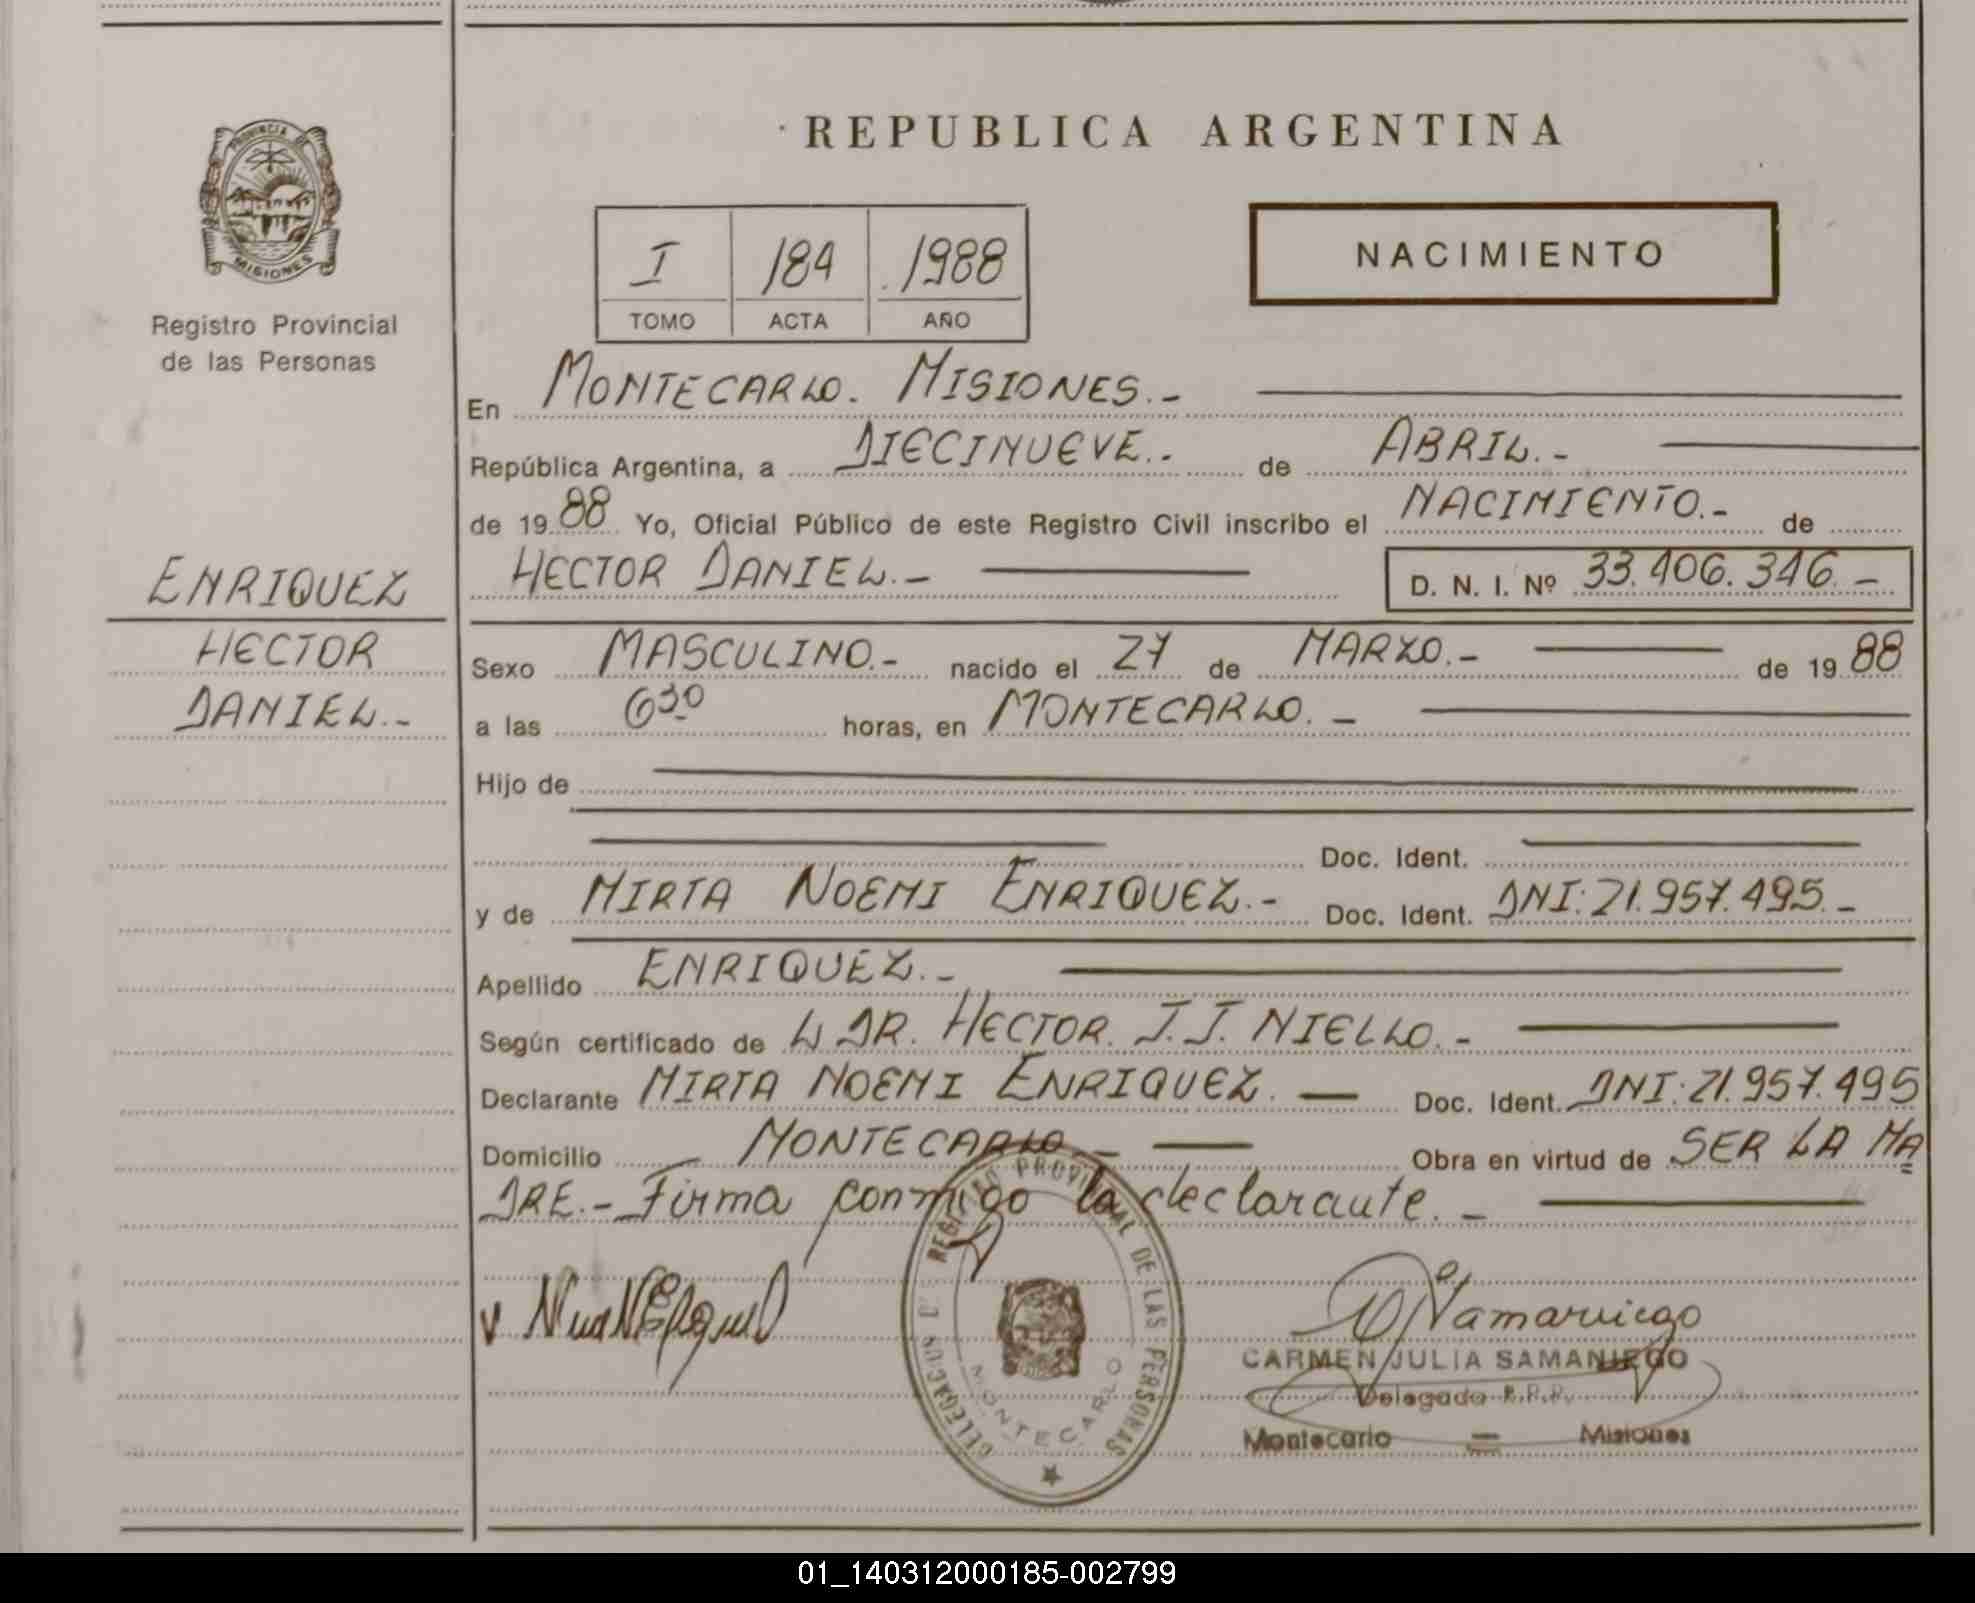 PROVINCIA DE
MISIONES
Registro Provincial
de las Personas
ENRIQUEZ
HECTOR
DANIEL.-
REPUBLICA ARGENTINA
I 184 1988
TOMO ACTA AÑO
NACIMIENTO
En MONTECARLO. MISIONES.-
República Argentina, a DIECINUEVE.- de ABRIL.-
de 1988 Yo, Oficial Público de este Registro Civil inscribo el NACIMIENTO.- de
HECTOR DANIEL.- D. N. I. Nº 33.406.346.-
Sexo MASCULINO.- nacido el 27 de MARZO.- de 1988
a las 630 horas, en MONTECARLO.-
Hijo de
Doc. Ident.
y de MIRTA NOEMI ENRIQUEZ.- Doc. Ident. DNI: 21.957.495.-
Apellido ENRIQUEZ.-
Según certificado de L DR. HECTOR. J.J. NIELLO.-
Declarante MIRTA NOEMI ENRIQUEZ. — Doc. Ident. DNI: 21.957.495
Domicilio MONTECARLO.- Obra en virtud de SER LA MA
DRE.- Firma conmigo la declarante.-
REGISTRO PROVINCIAL DE LAS PERSONAS
DELEGACION
MONTECARLO
CARMEN JULIA SAMANIEGO
Delegado R.P.P.
Montecarlo — Misiones
01_140312000185-002799